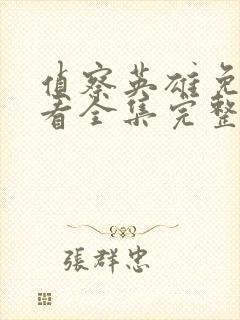 偵察英雄免
看全集完整
張群忠